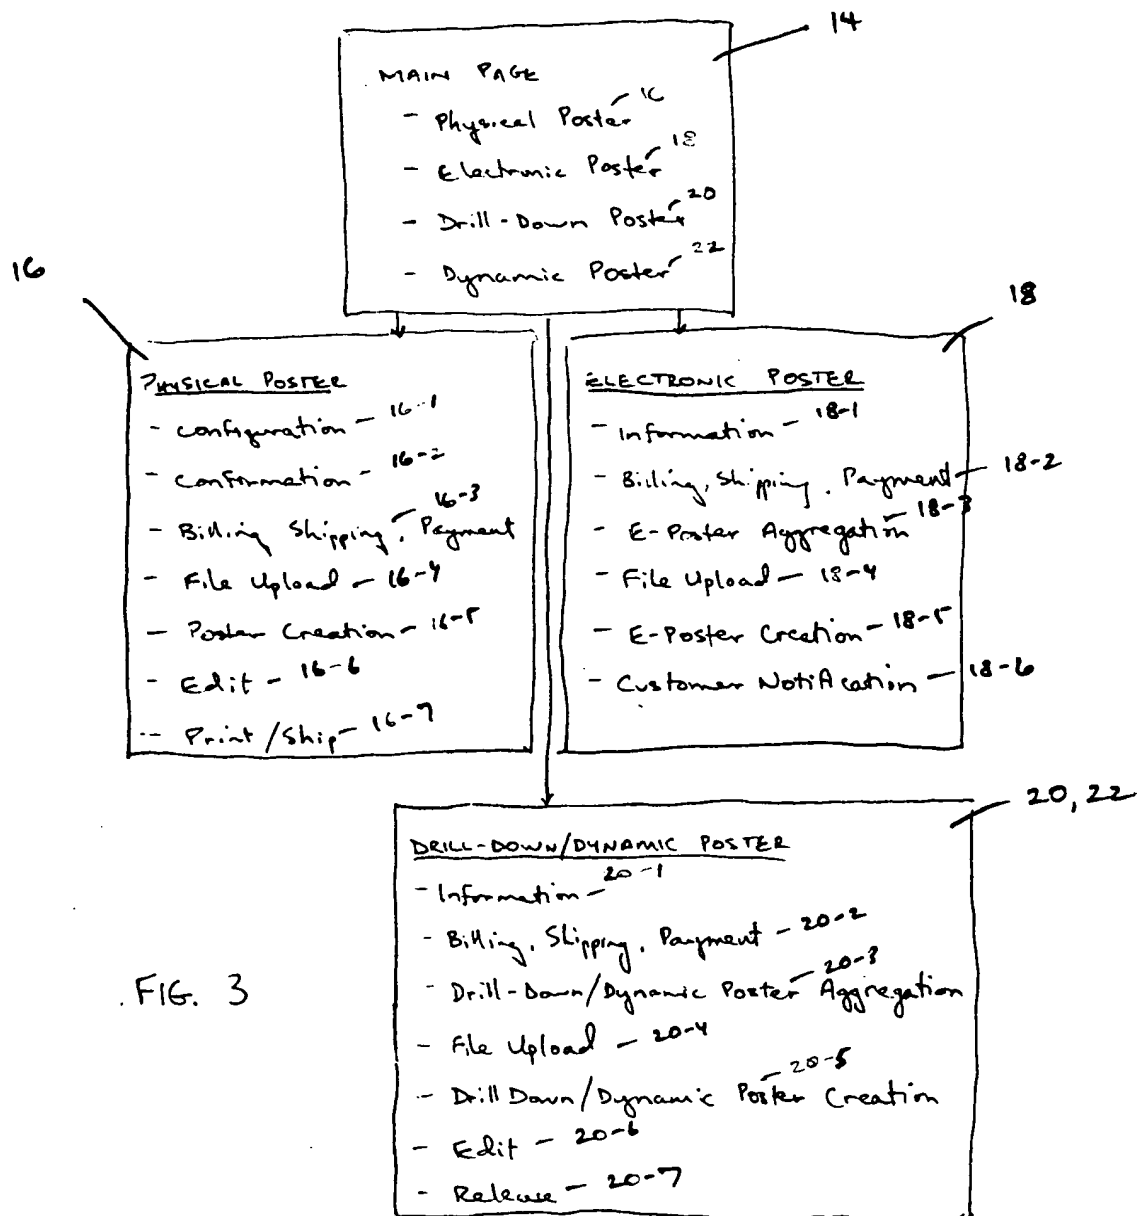 14
MAIN PAGE
- Physical Poster 16
- Electronic Poster 18
- Drill-Down Poster 20
- Dynamic Poster 22
16
PHYSICAL POSTER
- Configuration - 16-1
- Confirmation - 16-2
- Billing, Shipping, Payment 16-3
- File Upload - 16-4
- Poster Creation - 16-5
- Edit - 16-6
- Print/Ship - 16-7
18
ELECTRONIC POSTER
- Information - 18-1
- Billing, Shipping, Payment - 18-2
- E-Poster Aggregation - 18-3
- File Upload - 18-4
- E-Poster Creation - 18-5
- Customer Notification - 18-6
20, 22
DRILL-DOWN/DYNAMIC POSTER
- Information - 20-1
- Billing, Shipping, Payment - 20-2
- Drill-Down/Dynamic Poster Aggregation 20-3
- File Upload - 20-4
- Drill Down/Dynamic Poster Creation 20-5
- Edit - 20-6
- Release - 20-7
FIG. 3